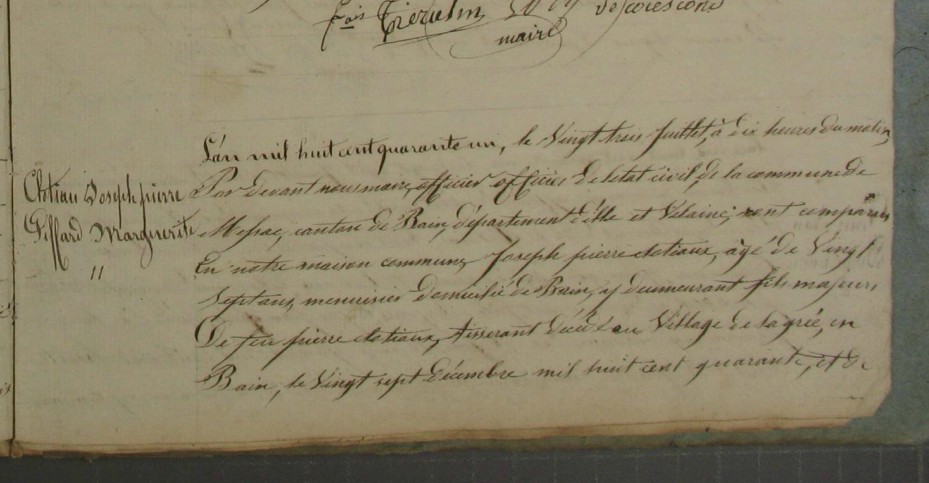 fois Tiercelin
maire
Clotiau Joseph pierre
Piffard Marguerite
"
L'an mil huit cent quarante un, le Vingt trois Juillet, à dix heures du matin,
Par devant nous maire, officier de letat civil, de la commune de
Messac, canton de Bain, département d'ille et Vilaine; sont comparus
En notre maison commune, Joseph pierre clotiaux, agé de Vingt
Sept ans, menuisier domicilié de Bain, y demeurant fils majeur
De feu pierre clotiaux, tisserant décédé au Village de la grée, en
Bain, le Vingt sept décembre mil huit cent quarante, et de